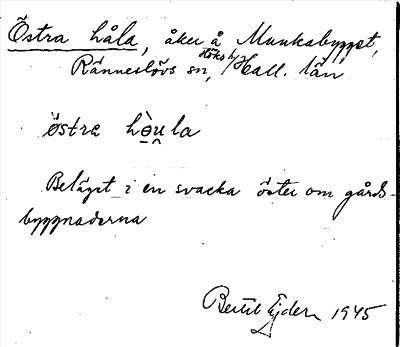 Östra håla, åker å Munkabygget,
Ränneslövs sn, Höks hd, Hall. län
östra hòu̯la
Beläget i en svacka öster om gårds-
byggnaderna
Bertil Ejder 1945